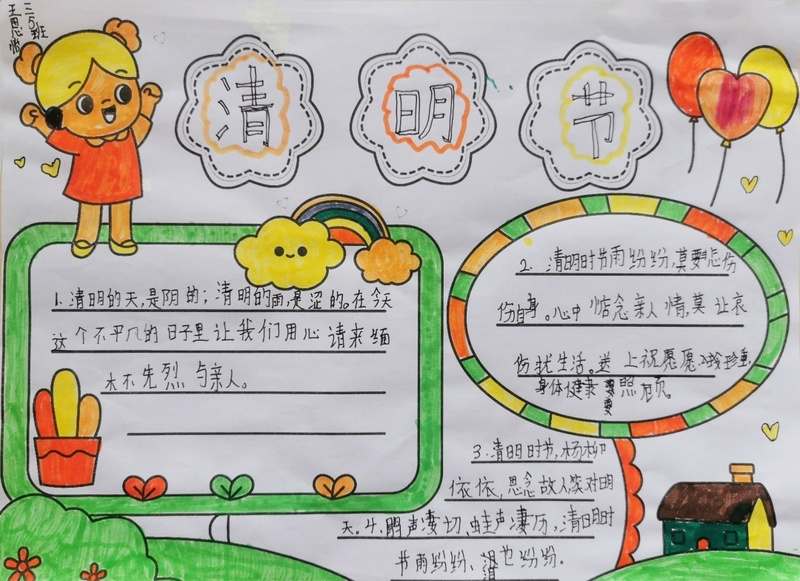 三5班
王思尚
清明节
1. 清明的天,是阴的;清明的雨,是涩的。在今天
这个不平凡的日子里让我们用心请来缅
怀先烈与亲人。
2. 清明时节雨纷纷,莫要悲伤
伤自身。心中惦念亲人情,莫让哀
伤扰生活。送上祝愿愿珍重,
身体健康要照顾。
3. 清明时节,杨柳
依依,思念故人笑对明
天。4. 鹃声凄切、蛙声凄厉,清明时
节雨纷纷、泪也纷纷.